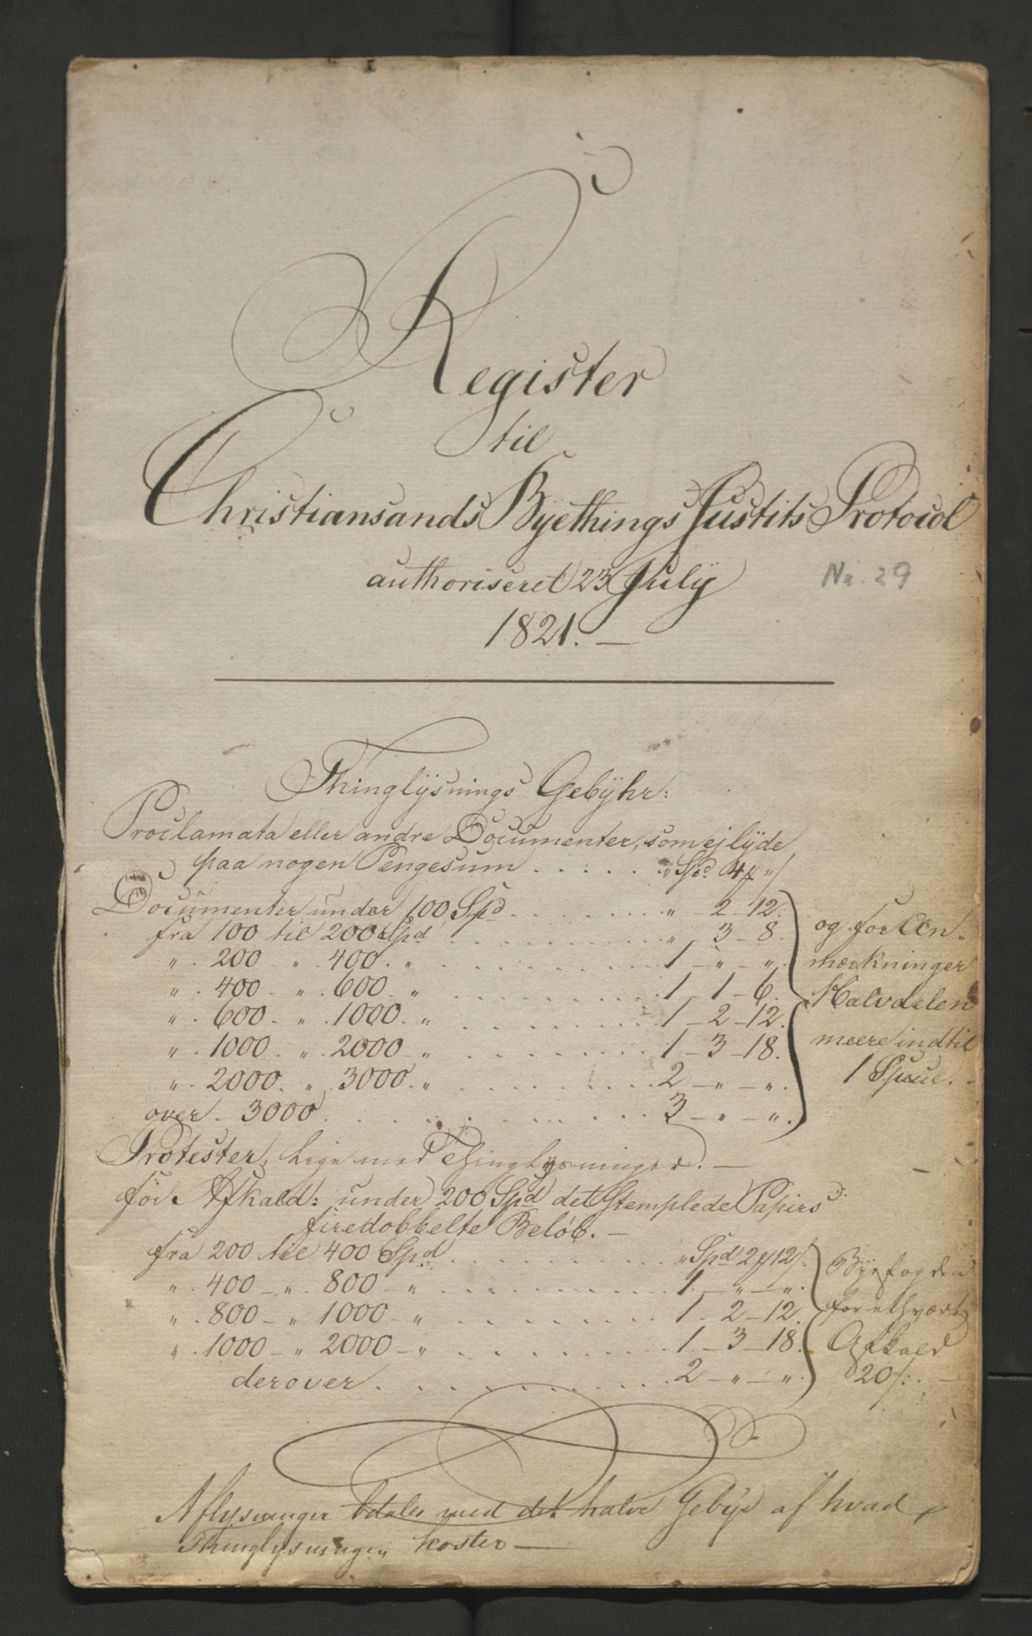 Register
til
Christiansands Byethings Justits Protocol
authoriseret 23 July
Nr. 29
1821. —
Thinglysnings Gebÿhr:
Proclamata eller andre Documenter, som ej lÿde
paa nogen Pengesum . . . . . " Spd 4 " 
Documenter under 100 Spd . . . . . . " - 2 - 12.
fra 100 til 200 Spd . . . . . . " - 3 - 8.
" . 200 . " . 400 . " . . . . . . 1 - " - ".
" . 400 . " . 600 . " . . . . . . 1 - 1 - 6.
" . 600 . " . 1000 . " . . . . . . 1 - 2 - 12.
" . 1000 . " . 2000 . " . . . . . . 1 - 3 - 18.
" . 2000 . " . 3000 . " . . . . . . 2 - " - ".
over . 3000 . . . . . . 3 - " - ".
og for An-
mærkninger
Halvdelen
meere indtil
1 Specie.
Protester, lige med Thinglysninger. —
for Afkald: under 200 Spd det stemplede Papirs
firedobbelte Beløb. —
fra 200 til 400 Spd . . . . . . " Spd 2 12
" . 400 - " . 800 - " . . . . . . 1 - " - ".
" . 800 - " 1000 - " . . . . . . 1 - 2 - 12.
" . 1000 - " 2000 - " . . . . . . 1 - 3 - 18.
derover . . . . . . 2 - " - ".
Bÿefogden
for ethvert
Afkald
20
Aflysninger betales med det halve Gebÿr af hvad
Thinglysningen koster —